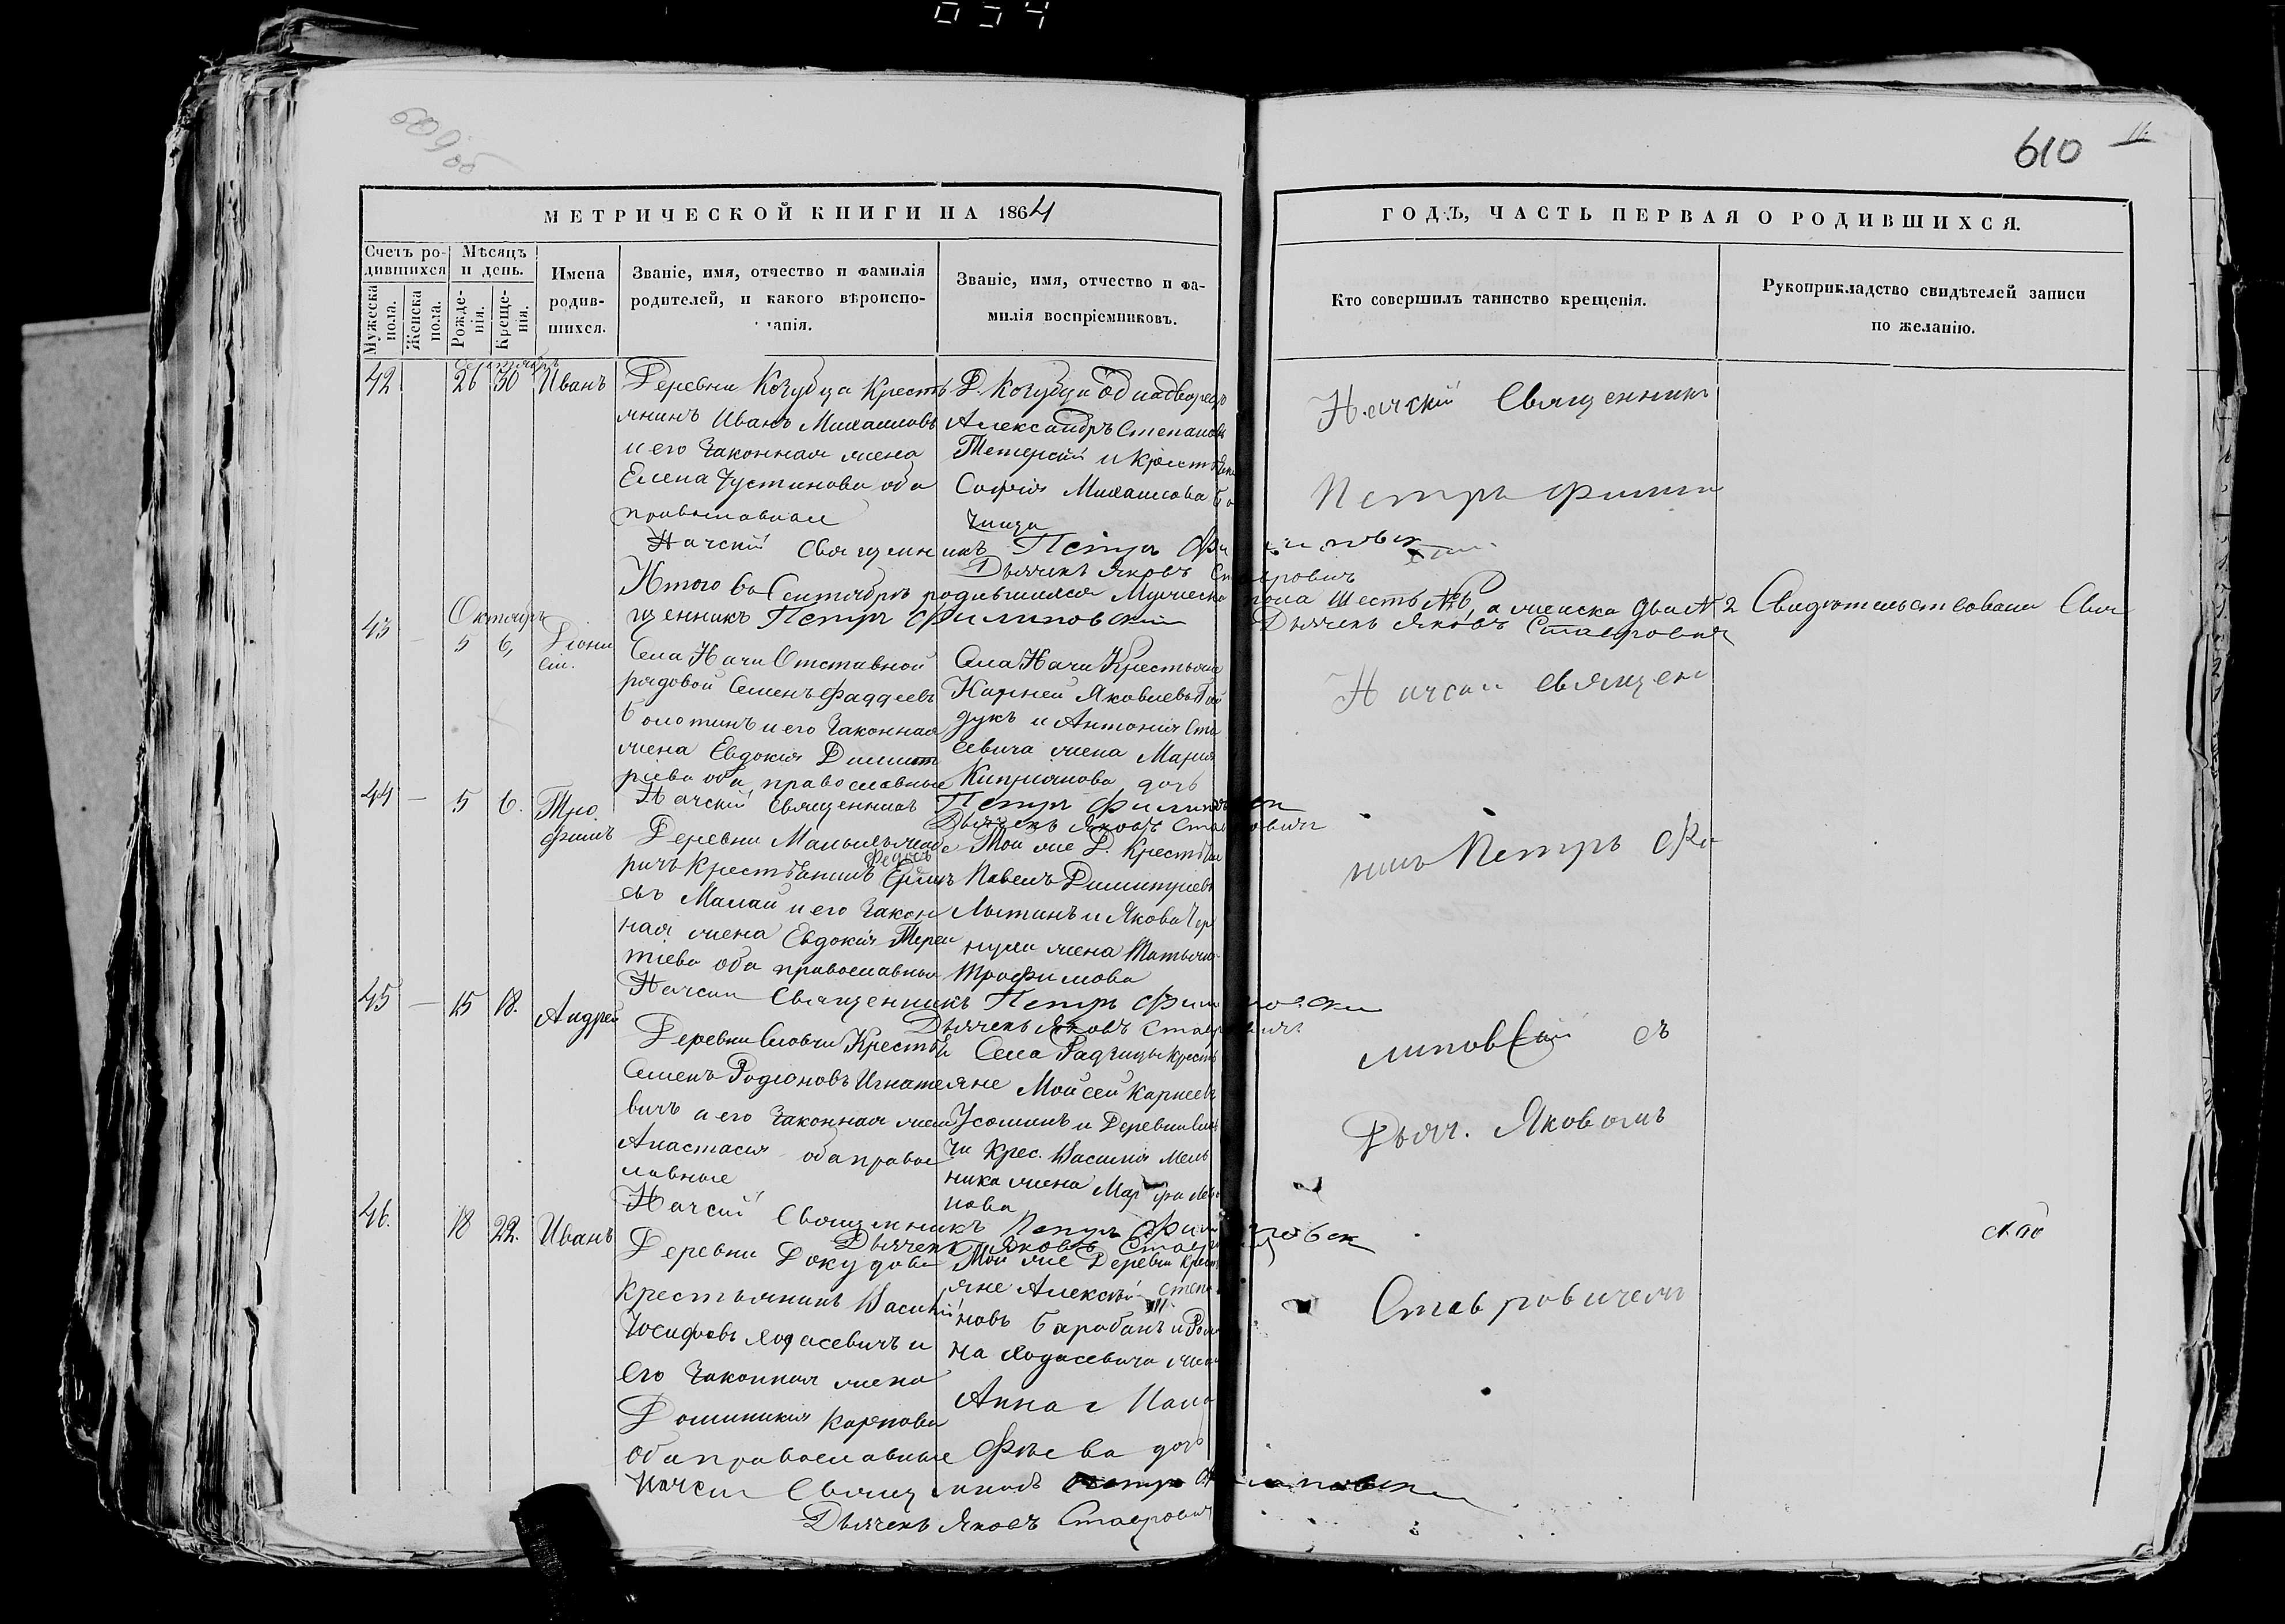 034
609 об
610
11.
МЕТРИЧЕСКОЙ КНИГИ НА 1864
ГОДЪ, ЧАСТЬ ПЕРВАЯ О РОДИВШИХСЯ.
Счетъ ро-
дившихся
Мужеска
пола.
Женска
пола.
Мѣсяцъ
и день.
Рожде-
нія.
Креще-
нія.
Имена
родив-
шихся.
Званіе, имя, отчество и фамилія
родителей, и какого вѣроиспо-
ванія.
Званіе, имя, отчество и фа-
милія воспріемниковъ.
Кто совершилъ таинство крещенія.
Рукоприкладство свидѣтелей записи
по желанію.
Сентябрь
42 26 30 Иванъ
Деревни Козубца Кресть
янинъ Иванъ Михаиловъ
и его законная жена
Елена Іустинова оба
православные
Д. Козубца Однодворецъ
Александръ Степановъ
и Крестьян
Софія Михаилова
Начскій Священникъ
Петръ Филип
Начскій Священникъ Петръ Филиповск
Дьячекъ Яковъ Ставровичъ
Итого въ Сентябрѣ родившихся Мужеска пола шесть №6, а женска два №2 Свидѣтельствовали Свя
щенникъ Петръ Филиповский Дьячекъ Яковъ Ставровичъ
Октябрь
43 – 5 6, Діони
сій.
Села Начи Отставной
рядовой Семенъ Фаддеевъ
Болотинъ и его законная
жена Евдокия Димит
ріева оба православные
Села Начи Крестьяне
Карней Яковлевъ Гай
дукъ и Антонія Ста
севича жена Марія
Кипріянова дочь
Начскій Священ
Начскій Священникъ Петръ Филиповски
Дьячекъ Яковъ Ставровичъ
44 – 5 6. Тро
фимъ
ричъ Крестьянинъ
Федос
евъ Малай и его закон
ная жена Евдокія Терен
тіева оба православные
Той же Д. Крестьян
Павелъ Димитріевъ
и Якова
жена Татьяна
Трофимова
никъ Петръ Фи
Начскій Священникъ Петръ Филиповски
Дьячекъ Яковъ Ставровичъ
45 – 15 18. Андрей
Деревни Крестья
Семенъ Родіоновъ Игнате
вичъ и его законная жена
Анастасія оба правос
лавные
Села Радзицы Кресть
яне Мойсей Карнеевъ
и Деревни
чи Крес. Василія Мель
ника жена
нова
липовский съ
Дьяч. Яковомъ
Начскій Священникъ Петръ Филиповск
Дьячекъ Яковъ Ставрович
46. 18 22. Иванъ
Деревни Докудова
Крестьянинъ Василій
Іосифовъ Ходасевичъ и
его законная жена
Доминикия Карпова
оба православные
Той же Деревни Крест
яне Алексѣй Степа
новъ Барабанъ и Рома
на Ходасевича жена
Анна
дочь
Ставровичемъ
Начскій Священникъ Петръ Филиповски
Дьячекъ Яковъ Ставровичъ